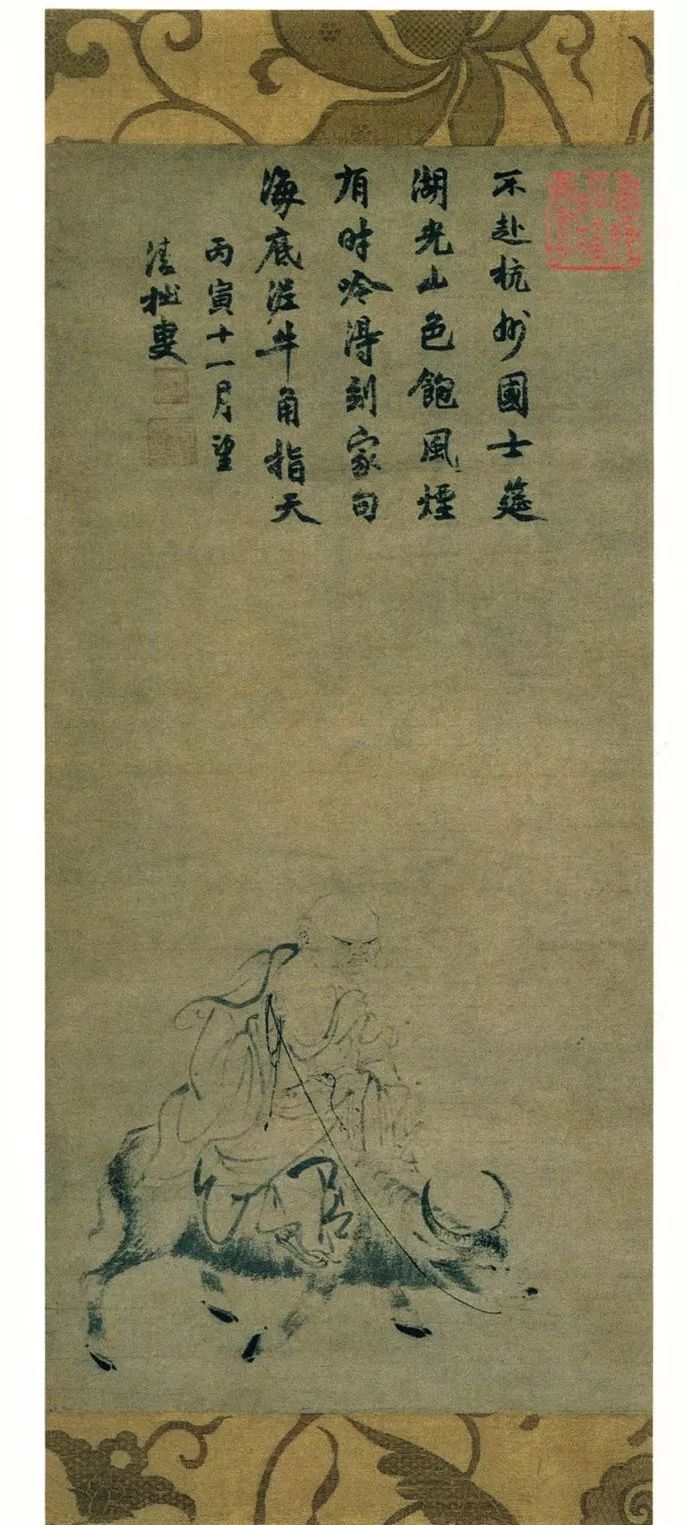 不赴杭州國士筵
湖光山色飽風煙
有時吟得到家句
海底泥牛角指天
丙寅十一月望
清拙叟